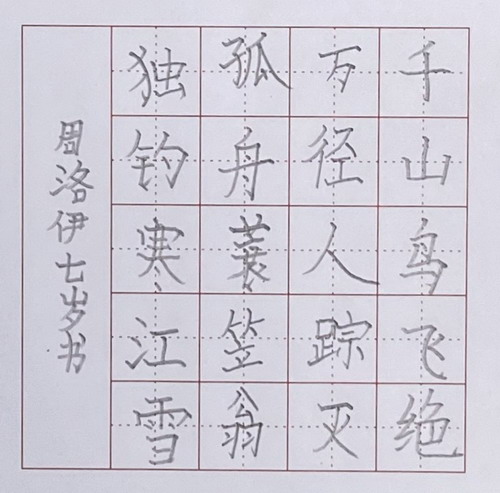 千山鸟飞绝
万径人踪灭
孤舟蓑笠翁
独钓寒江雪
周洛伊七岁书